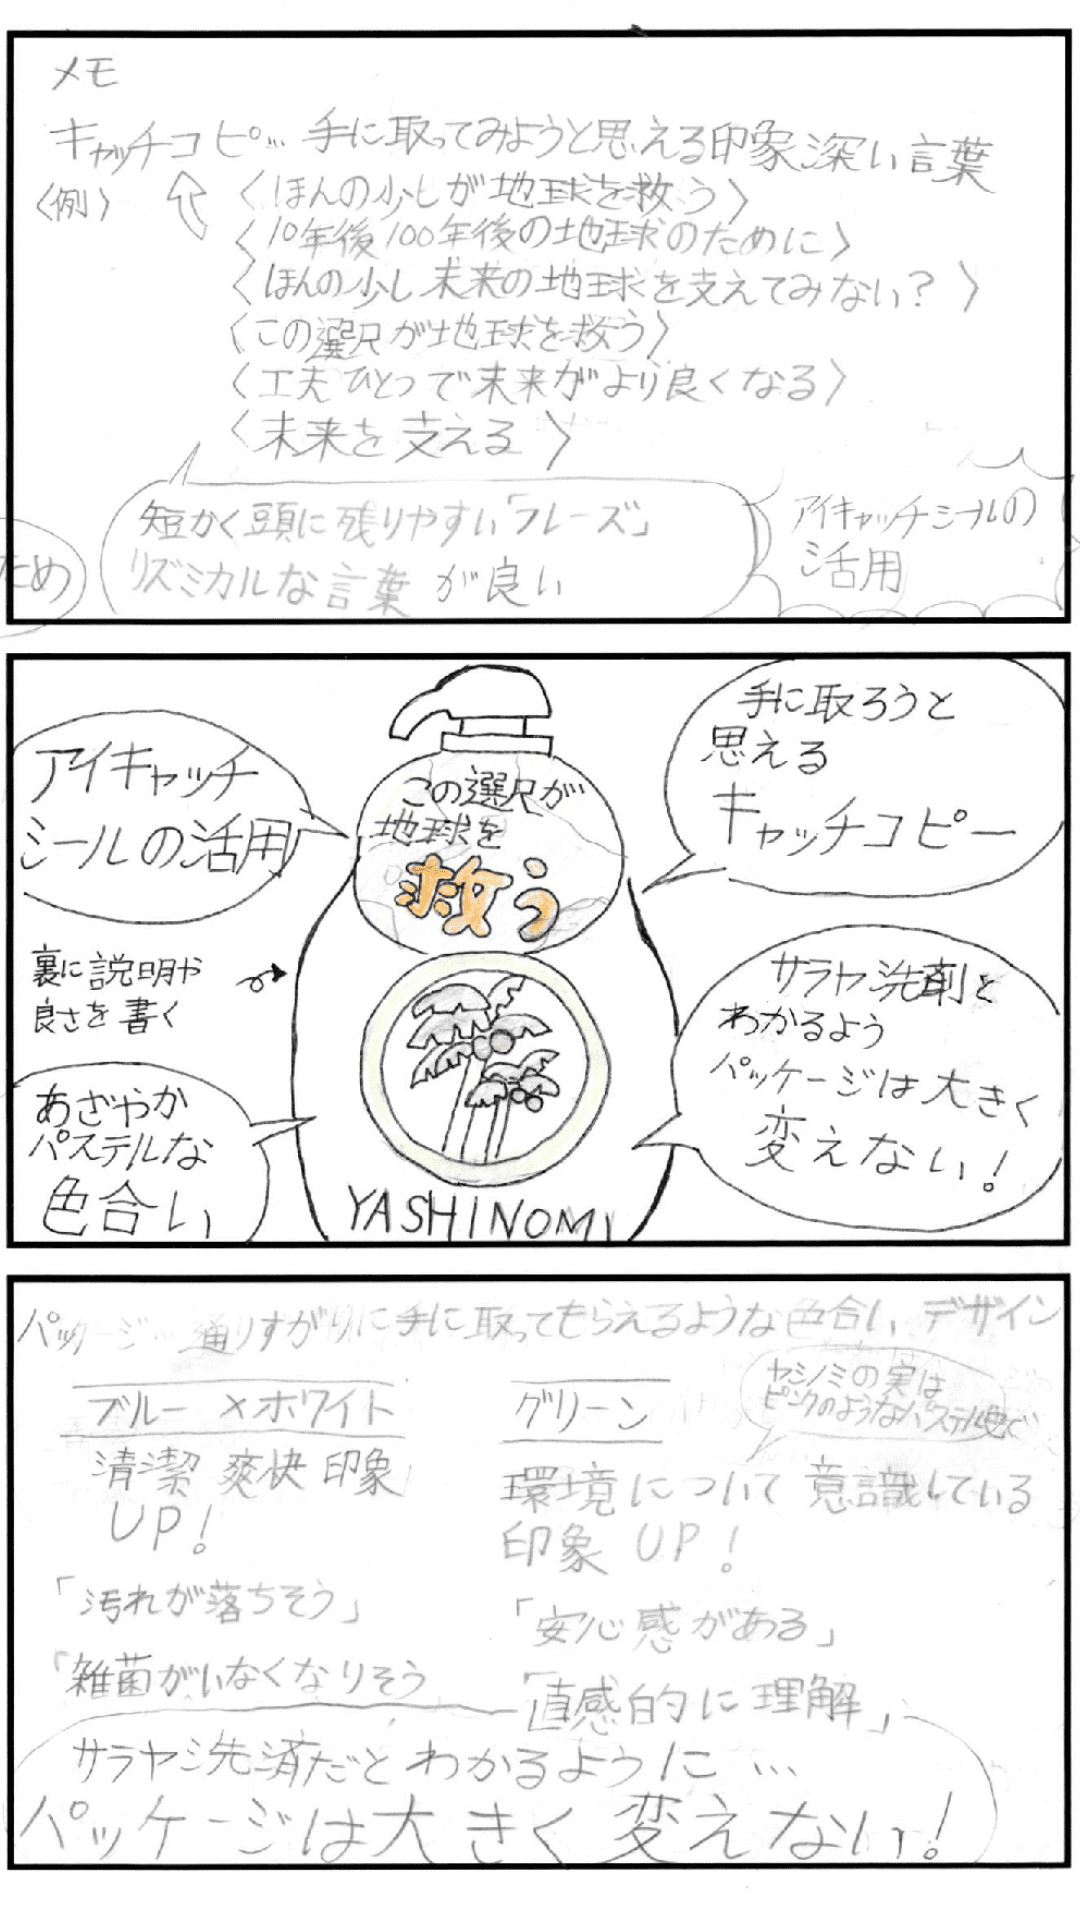 メモ
キャッチコピ… 手に取ってみようと思える印象深い言葉
〈例〉
〈ほんの少しが地球を救う〉
〈10年後100年後の地球のために〉
〈ほんの少し未来の地球を支えてみない？〉
〈この選択が地球を救う〉
〈工夫ひとつで未来がより良くなる〉
〈未来を支える〉
短かく頭に残りやすい「フレーズ」
リズミカルな言葉が良い
アイキャッチシールの
活用
ため
アイキャッチ
シールの活用
この選択が
地球を
救う
手に取ろうと
思える
キャッチコピー
裏に説明や
良さを書く
サラヤ洗剤と
わかるよう
パッケージは大きく
変えない！
あざやか
パステルな
色合い
YASHINOMI
パッケージ… 通りすがりに手に取ってもらえるような色合い デザイン
ヤシノミの実は
ピンクのようなパステル
ブルー×ホワイト
清潔 爽快 印象
UP！
「汚れが落ちそう」
「雑菌がいなくなりそう
グリーン
環境について意識している
印象 UP！
「安心感がある」
「直感的に理解」
サラヤ洗済だとわかるように…
パッケージは大きく変えない！